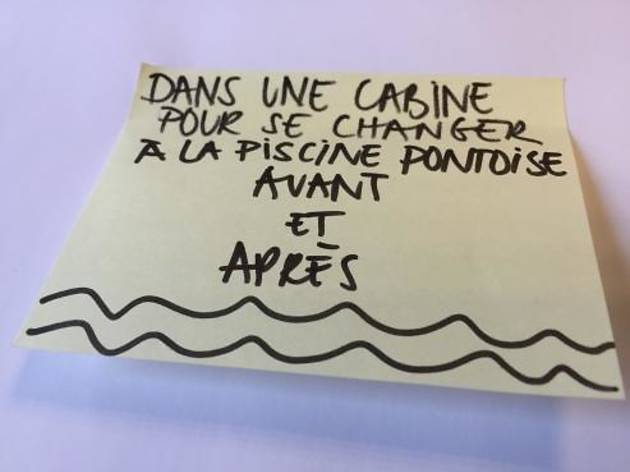 DANS UNE CABINE
POUR SE CHANGER
À LA PISCINE PONTOISE
AVANT
ET
APRÈS